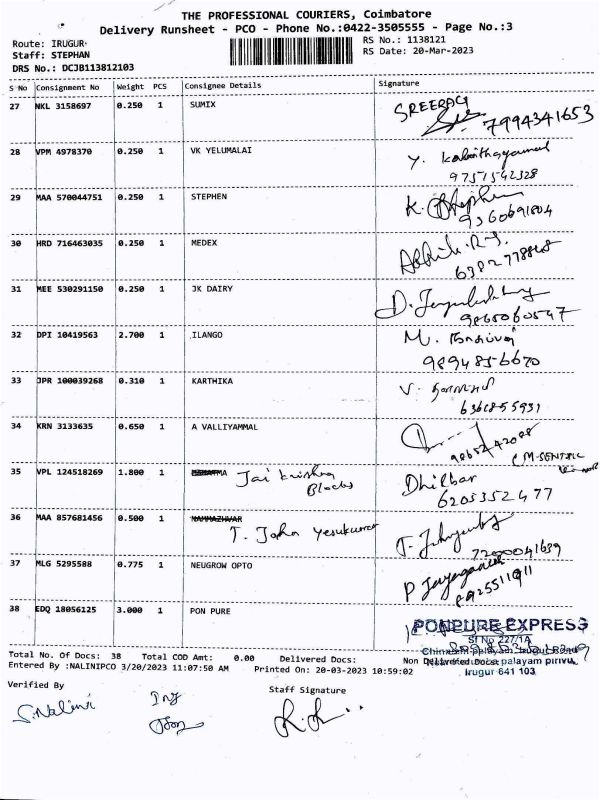 THE PROFESSIONAL COURIERS, Coimbatore
Delivery Runsheet - PCO - Phone No.:0422-3505555 - Page No.:3
Route: IRUGUR
Staff: STEPHAN
DRS No.: DCJB113812103
RS No.: 1138121
RS Date: 20-Mar-2023
S No Consignment No Weight PCS Consignee Details Signature
27 NKL 3158697 0.250 1 SUMIX SREERAG
7994341653
28 VPM 4978370 0.250 1 VK YELUMALAI
9751542328
29 MAA 570044751 0.250 1 STEPHEN K. Stephen
9360691804
30 HRD 716463035 0.250 1 MEDEX
31 MEE 530291150 0.250 1 JK DAIRY
9865060547
32 DPI 10419563 2.700 1 ILANGO
9894856670
33 JPR 100039268 0.310 1 KARTHIKA
34 KRN 3133635 0.650 1 A VALLIYAMMAL
35 VPL 124518269 1.800 1 Jai Krishna Dhilbar
Blocks 6205352477
36 MAA 857681456 0.500 1 T. John Yesukumar
7200041639
37 MLG 5295588 0.775 1 NEUGROW OPTO
38 EDQ 18056125 3.000 1 PON PURE
PONPURE EXPRESS
Sf No 227/1A
Irugur 641 103
Total No. Of Docs: 38 Total COD Amt: 0.00 Delivered Docs: Non Delivered Docs:
Entered By :NALINIPCO 3/20/2023 11:07:50 AM Printed On: 20-03-2023 10:59:02
Verified By Staff Signature
S.Nalini